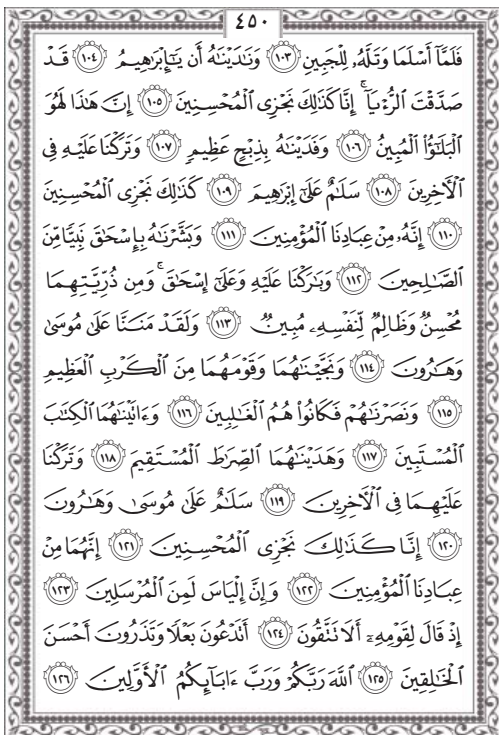 ٤٥٠
فَلَمَّآ أَسْلَمَا وَتَلَّهُۥ لِلْجَبِينِ ١٠٣ وَنَٰدَيْنَٰهُ أَن يَٰٓإِبْرَٰهِيمُ ١٠٤ قَدْ
صَدَّقْتَ ٱلرُّءْيَآ ۚ إِنَّا كَذَٰلِكَ نَجْزِى ٱلْمُحْسِنِينَ ١٠٥ إِنَّ هَٰذَا لَهُوَ
ٱلْبَلَٰٓؤُا۟ ٱلْمُبِينُ ١٠٦ وَفَدَيْنَٰهُ بِذِبْحٍ عَظِيمٍ ١٠٧ وَتَرَكْنَا عَلَيْهِ فِى
ٱلْأَخِرِينَ ١٠٨ سَلَٰمٌ عَلَىٰٓ إِبْرَٰهِيمَ ١٠٩ كَذَٰلِكَ نَجْزِى ٱلْمُحْسِنِينَ
١١٠ إِنَّهُۥ مِنْ عِبَادِنَا ٱلْمُؤْمِنِينَ ١١١ وَبَشَّرْنَٰهُ بِإِسْحَٰقَ نَبِيًّا مِّنَ
ٱلصَّٰلِحِينَ ١١٢ وَبَٰرَكْنَا عَلَيْهِ وَعَلَىٰٓ إِسْحَٰقَ ۚ وَمِن ذُرِّيَّتِهِمَا
مُحْسِنٌ وَظَالِمٌ لِّنَفْسِهِۦ مُبِينٌ ١١٣ وَلَقَدْ مَنَنَّا عَلَىٰ مُوسَىٰ
وَهَٰرُونَ ١١٤ وَنَجَّيْنَٰهُمَا وَقَوْمَهُمَا مِنَ ٱلْكَرْبِ ٱلْعَظِيمِ
١١٥ وَنَصَرْنَٰهُمْ فَكَانُوا۟ هُمُ ٱلْغَٰلِبِينَ ١١٦ وَءَاتَيْنَٰهُمَا ٱلْكِتَٰبَ
ٱلْمُسْتَبِينَ ١١٧ وَهَدَيْنَٰهُمَا ٱلصِّرَٰطَ ٱلْمُسْتَقِيمَ ١١٨ وَتَرَكْنَا
عَلَيْهِمَا فِى ٱلْأَخِرِينَ ١١٩ سَلَٰمٌ عَلَىٰ مُوسَىٰ وَهَٰرُونَ
١٢٠ إِنَّا كَذَٰلِكَ نَجْزِى ٱلْمُحْسِنِينَ ١٢١ إِنَّهُمَا مِنْ
عِبَادِنَا ٱلْمُؤْمِنِينَ ١٢٢ وَإِنَّ إِلْيَاسَ لَمِنَ ٱلْمُرْسَلِينَ ١٢٣
إِذْ قَالَ لِقَوْمِهِۦٓ أَلَا تَتَّقُونَ ١٢٤ أَتَدْعُونَ بَعْلًا وَتَذَرُونَ أَحْسَنَ
ٱلْخَٰلِقِينَ ١٢٥ ٱللَّهَ رَبَّكُمْ وَرَبَّ ءَابَآئِكُمُ ٱلْأَوَّلِينَ ١٢٦